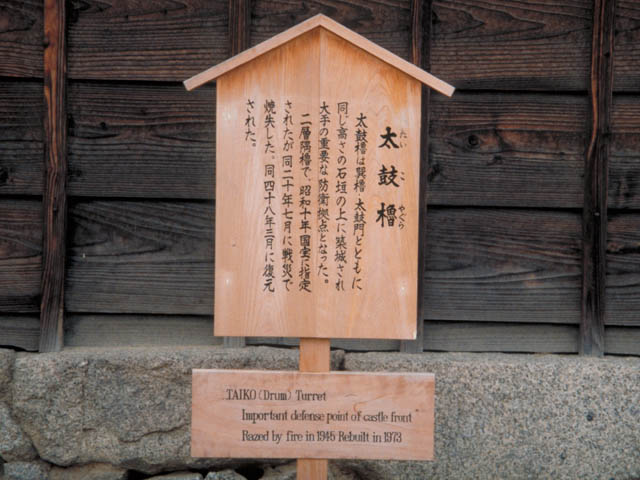 太鼓櫓
たいこやぐら
太鼓櫓は巽櫓、太鼓門とともに
同じ高さの石垣の上に築城され
大手の重要な防衛拠点となった。
二層隅櫓で、昭和十年国宝に指定
されたが同二十年七月に戦災で
焼失した。同四十八年三月に復元
された。
TAIKO (Drum) Turret
Important defense point of castle front
Razed by fire in 1945 Rebuilt in 1973